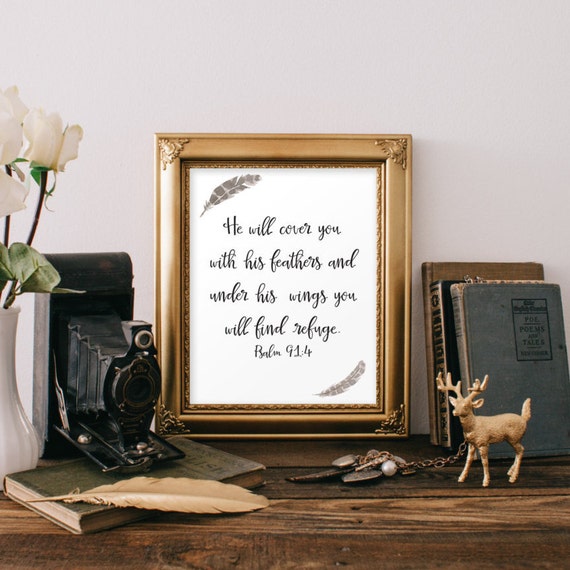 He will cover you
with his feathers and
under his wings you
will find refuge.
Psalm 91:4
POE
POEMS
AND
TALES